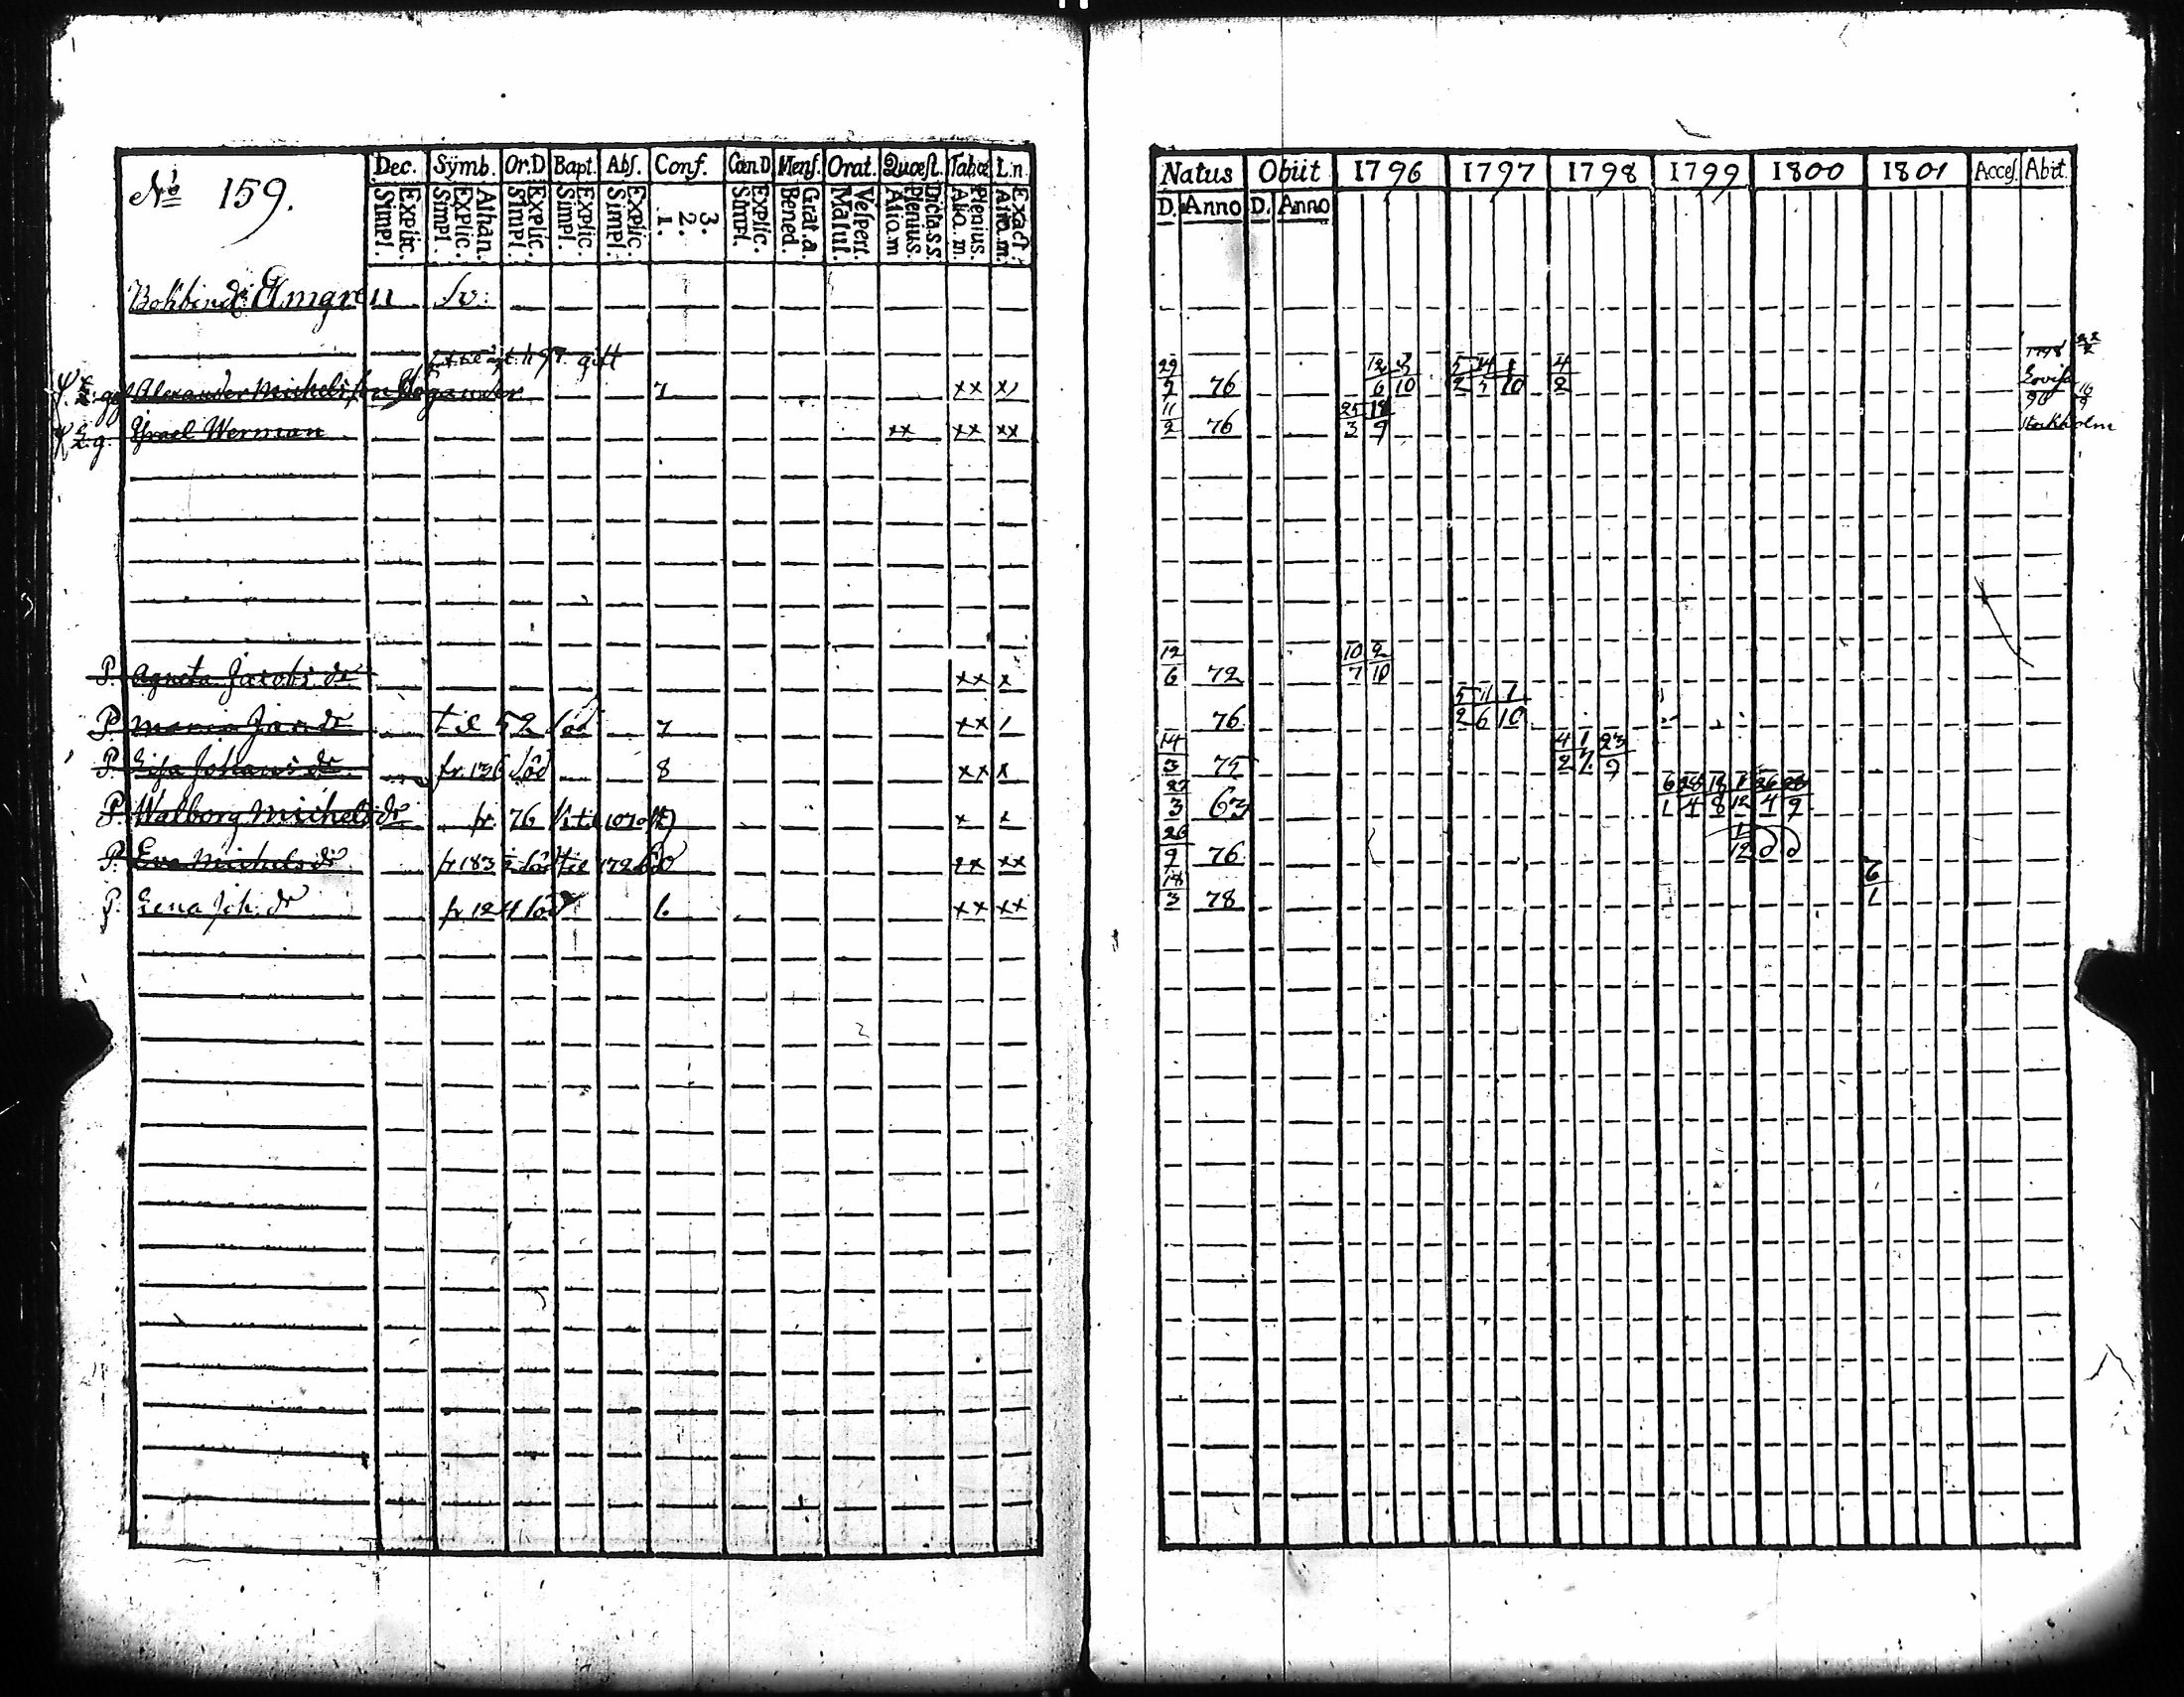 Nº 159.
Dec. Symb. Or.D Bapt. Abs. Conf. Cœn.D Mens. Orat. Quæst. Tab.œ L.n
Explic. Simpl. Athan. Explic. Simpl. Explic. Simpl. Explic. Simpl. Explic. Simpl. 3. 2. 1. Explic. Simpl. Grat.a. Bened. Vespert. Matut. Dicta.s.s. Plenius. Alio.m Plenius. Alio.m. Exact. Alio.m.
Natus Obiit 1796 1797 1798 1799 1800 1801 Acces. Abit.
D. Anno D. Anno
Bokbind: Almgren Sv:
gift
Alexander Michelsson 7 xx x/ 29/9 76 6 3/10 5/2 10 4/2 1798 Lovisa
Israel Werman xx xx xx 11/2 76 25/3 18/9 Stockholm
P. Agneta Jacobs dr xx x 12/6 72 10/7 2/10
P. Maria Jan dr til 52 Söd 7 xx / 76 5/2 11/6 1/10
P. Lisa Johans dr fr. 136 Söd 8 xx x 14/3 75 4/2 23/9
P. Walborg Michels dr fr. 76 x x 27/3 63 6/1 28/4 18/8 1/12 26/4 28/9
P. Eva Michels dr fr 183 til 172 xx xx 26/9 76 1/12
P. Lena Joh. dr fr. 124 Söd 6. xx xx 18/3 78 6/1